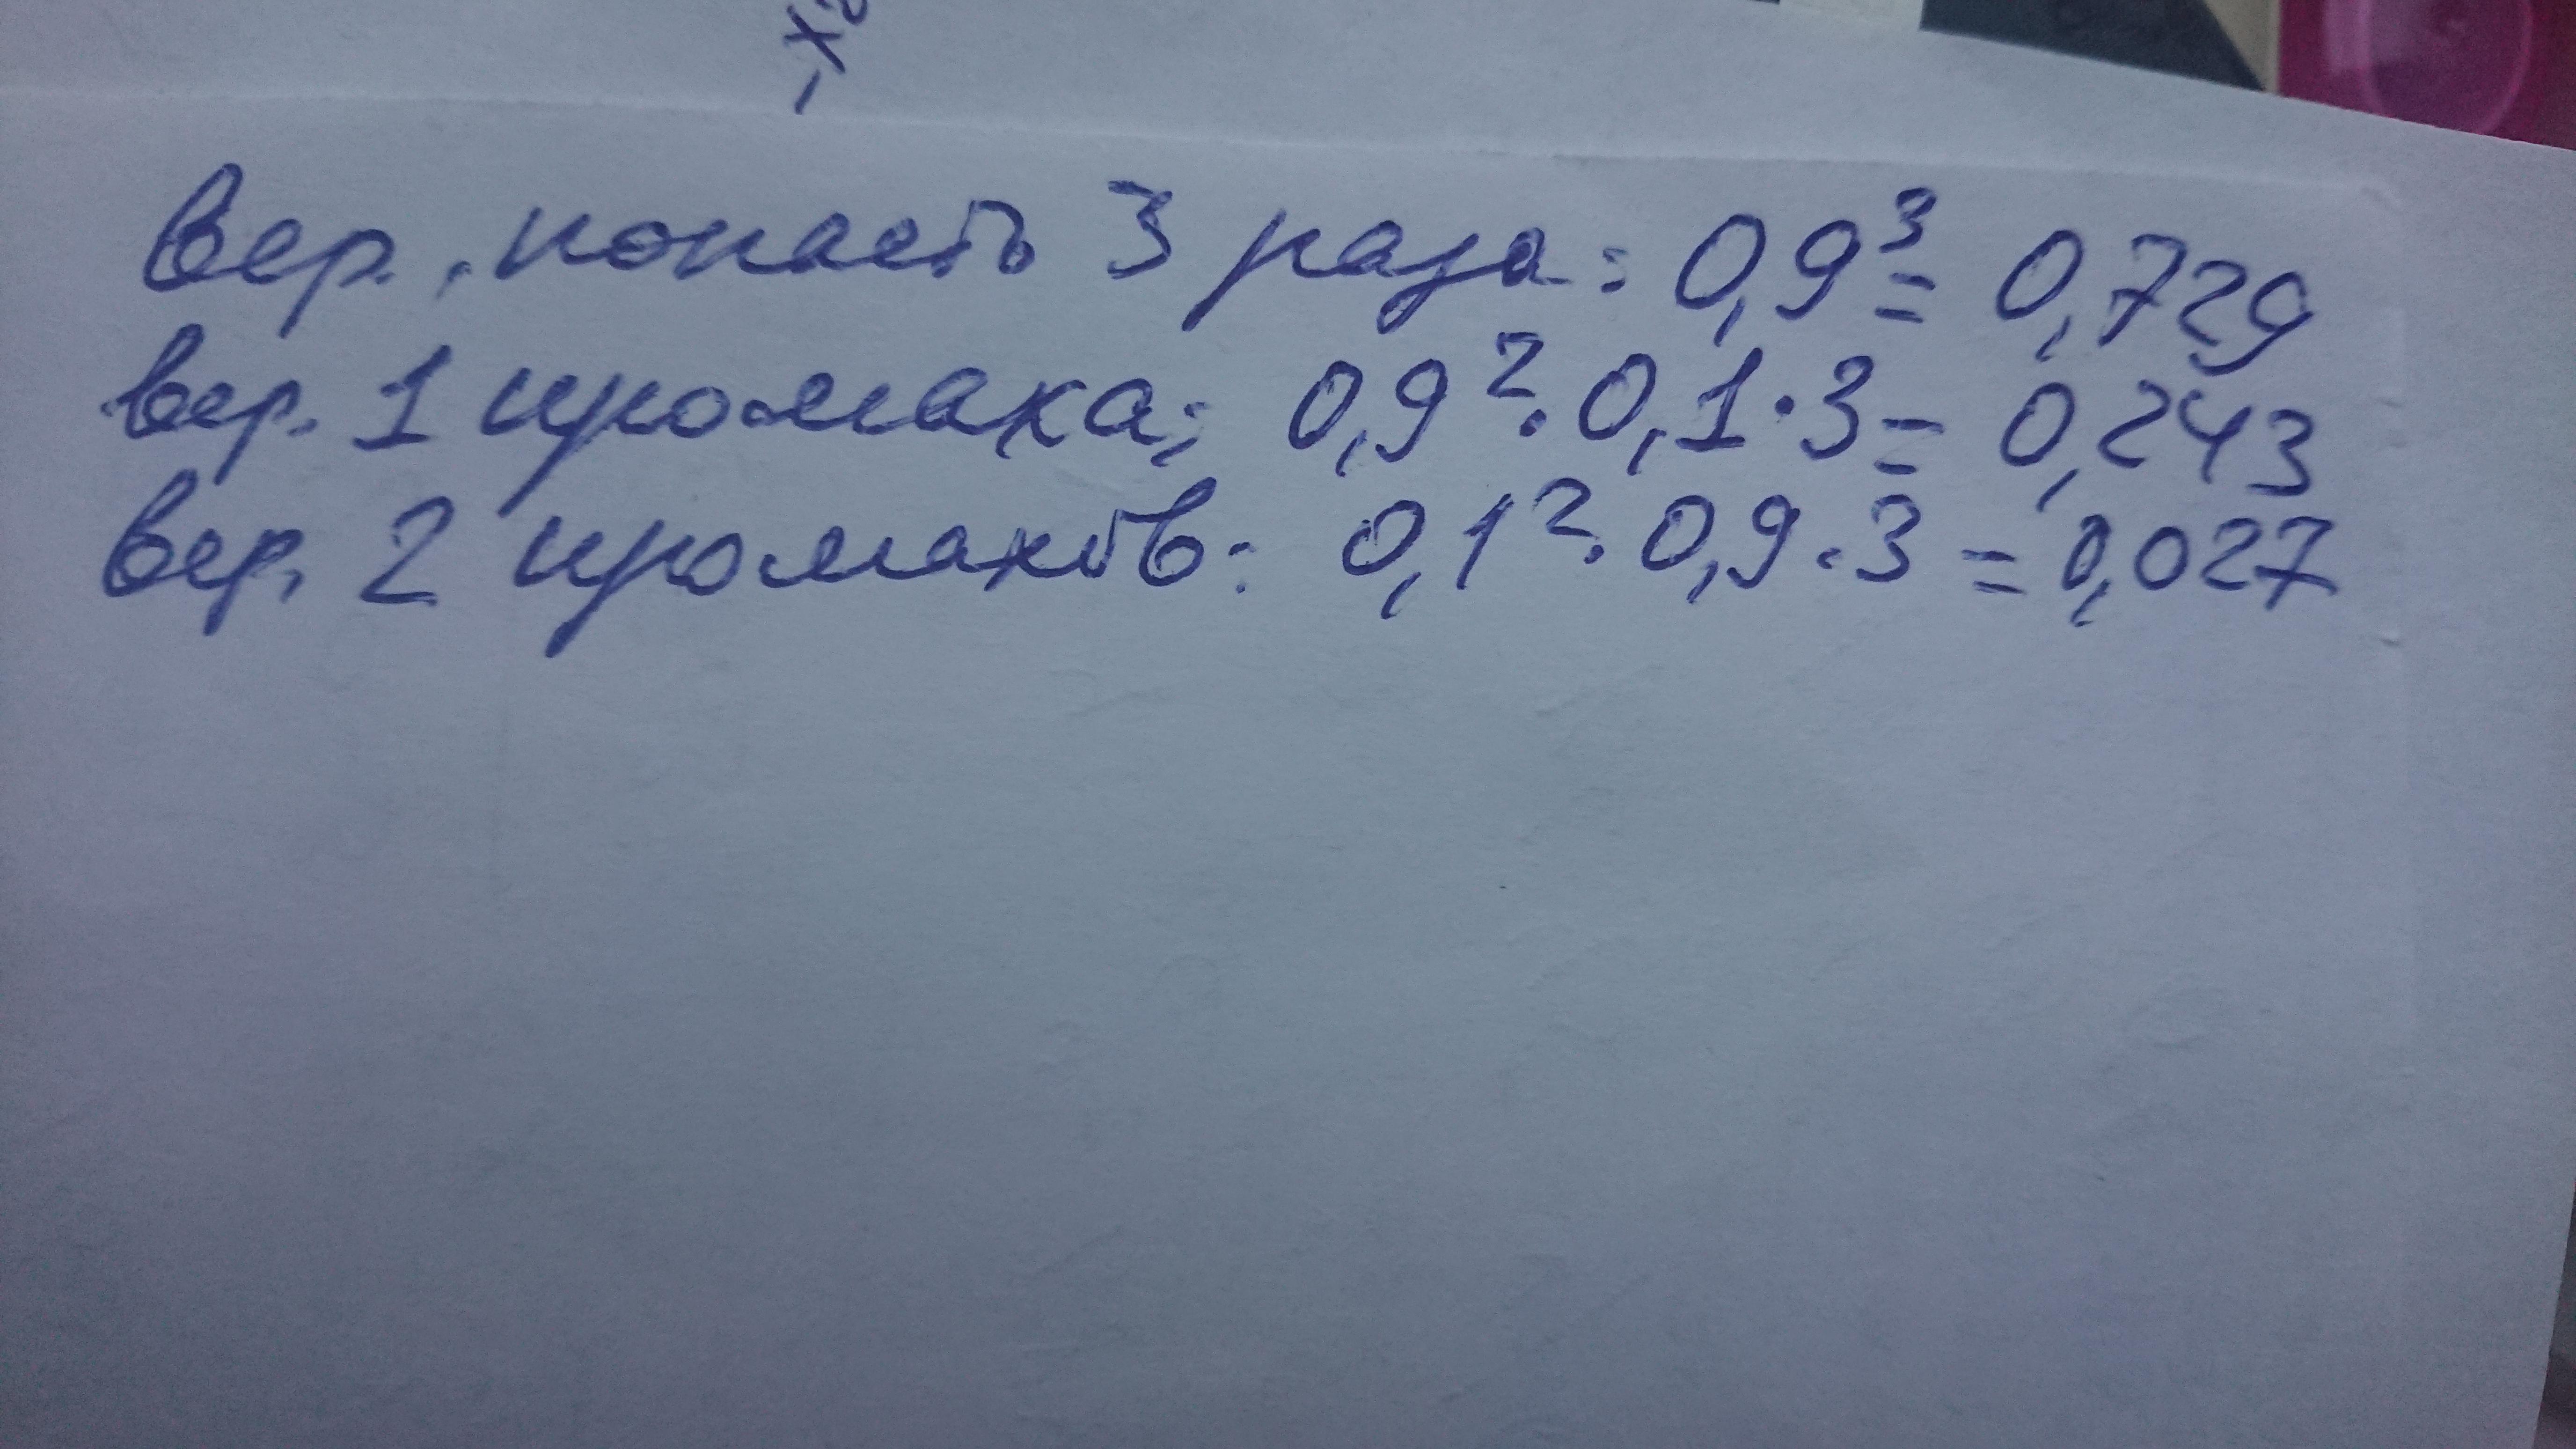 -x2
Вер. попасть 3 раза: 0,9³ = 0,729
вер. 1 промаха: 0,9² · 0,1 · 3 = 0,243
Вер. 2 промахов: 0,1² · 0,9 · 3 = 0,027